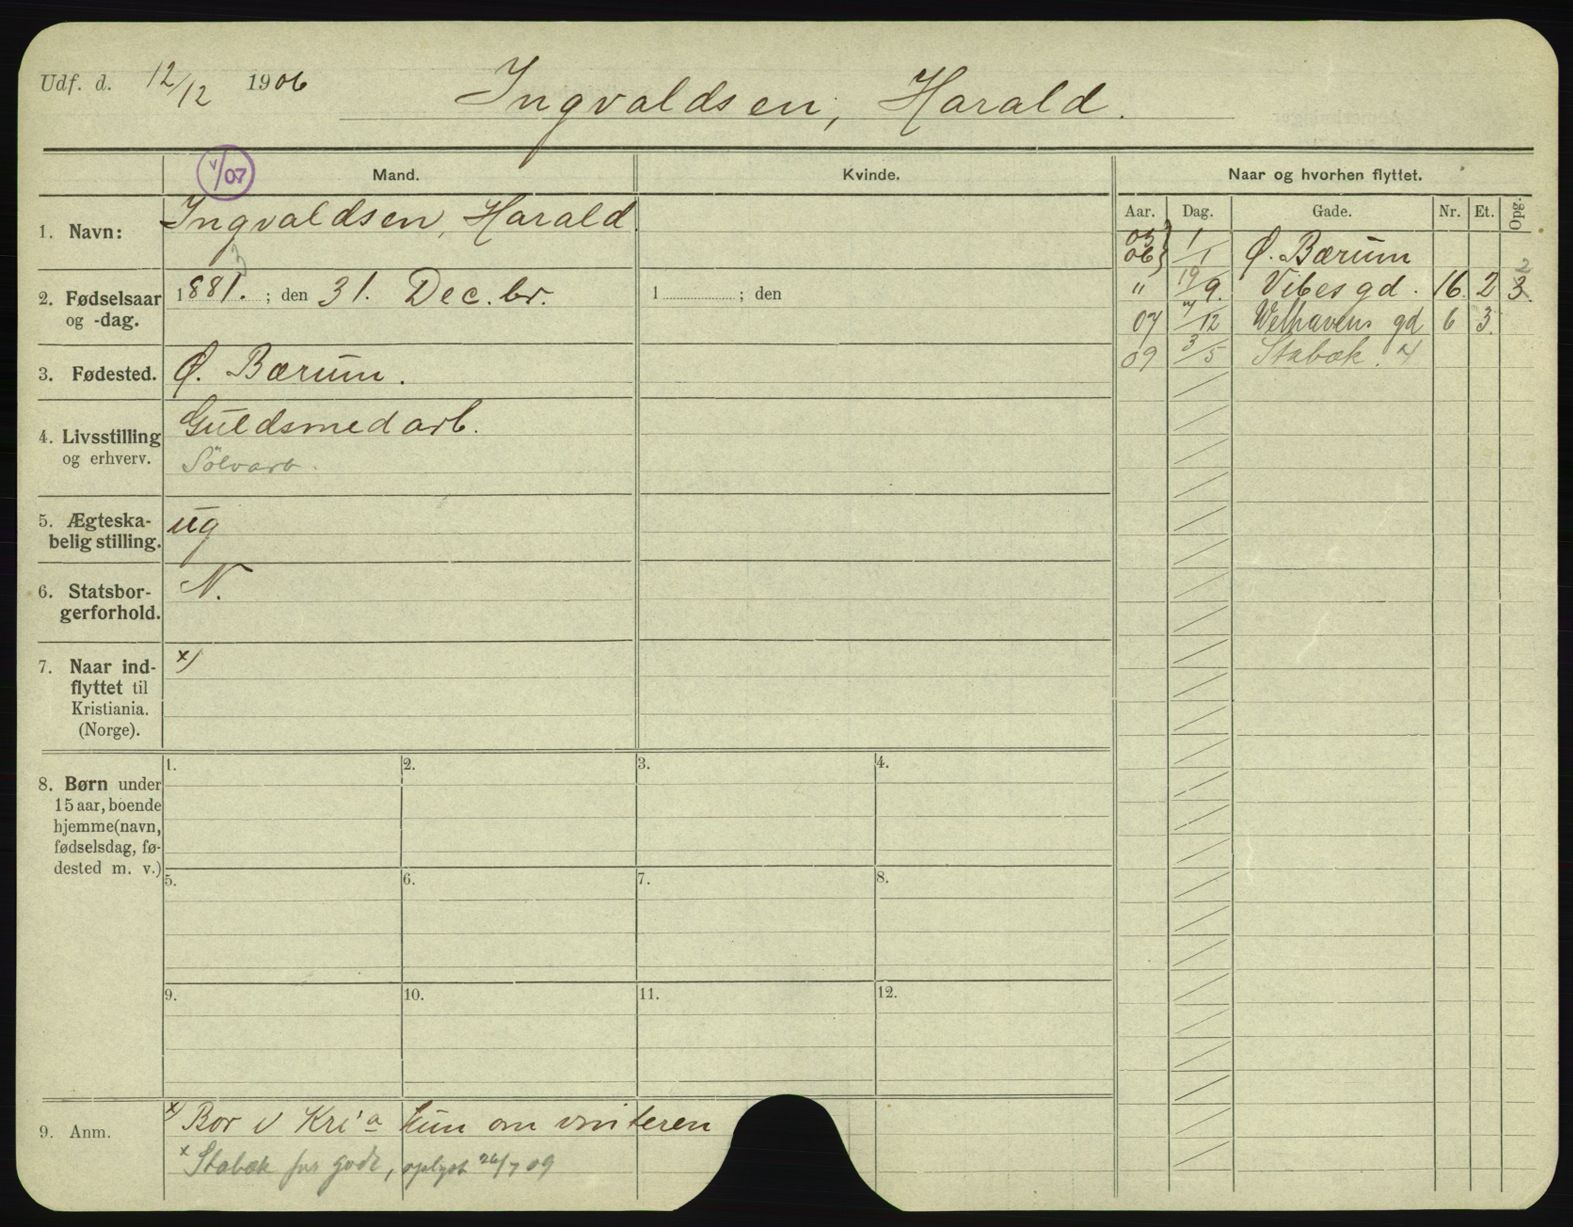 Udf. d. 12/12 1906
Ingvaldsen, Harald.
v/07
Mand.
Kvinde.
Naar og hvorhen flyttet.
Aar. Dag. Gade. Nr. Et. Opg.
1. Navn: Ingvaldsen, Harald
05 06 } 1/1 Ø. Bærum
2. Fødselsaar og -dag. 1881. ; den 31. Dec. br.
1 ; den
" 19/9. Vibesgd. 16. 2 3. 2
07 /12 Welhavens gd 6 3.
09 3/5 Stabæk.
3. Fødested. Ø. Bærum.
4. Livsstilling og erhverv. Guldsmedarb.
Sölvarb.
5. Ægteska-
belig stilling. ug
6. Statsbor-
gerforhold. N.
7. Naar ind-
flyttet til
Kristiania.
(Norge).
x)
8. Børn under
15 aar, boende
hjemme(navn,
fødselsdag, fø-
dested m. v.)
1. 2. 3. 4.
5. 6. 7. 8.
9. 10. 11. 12.
9. Anm.
x) Bor i Kri'a kun om vinteren
x Stabæk for godt, oplyst 26/7 09